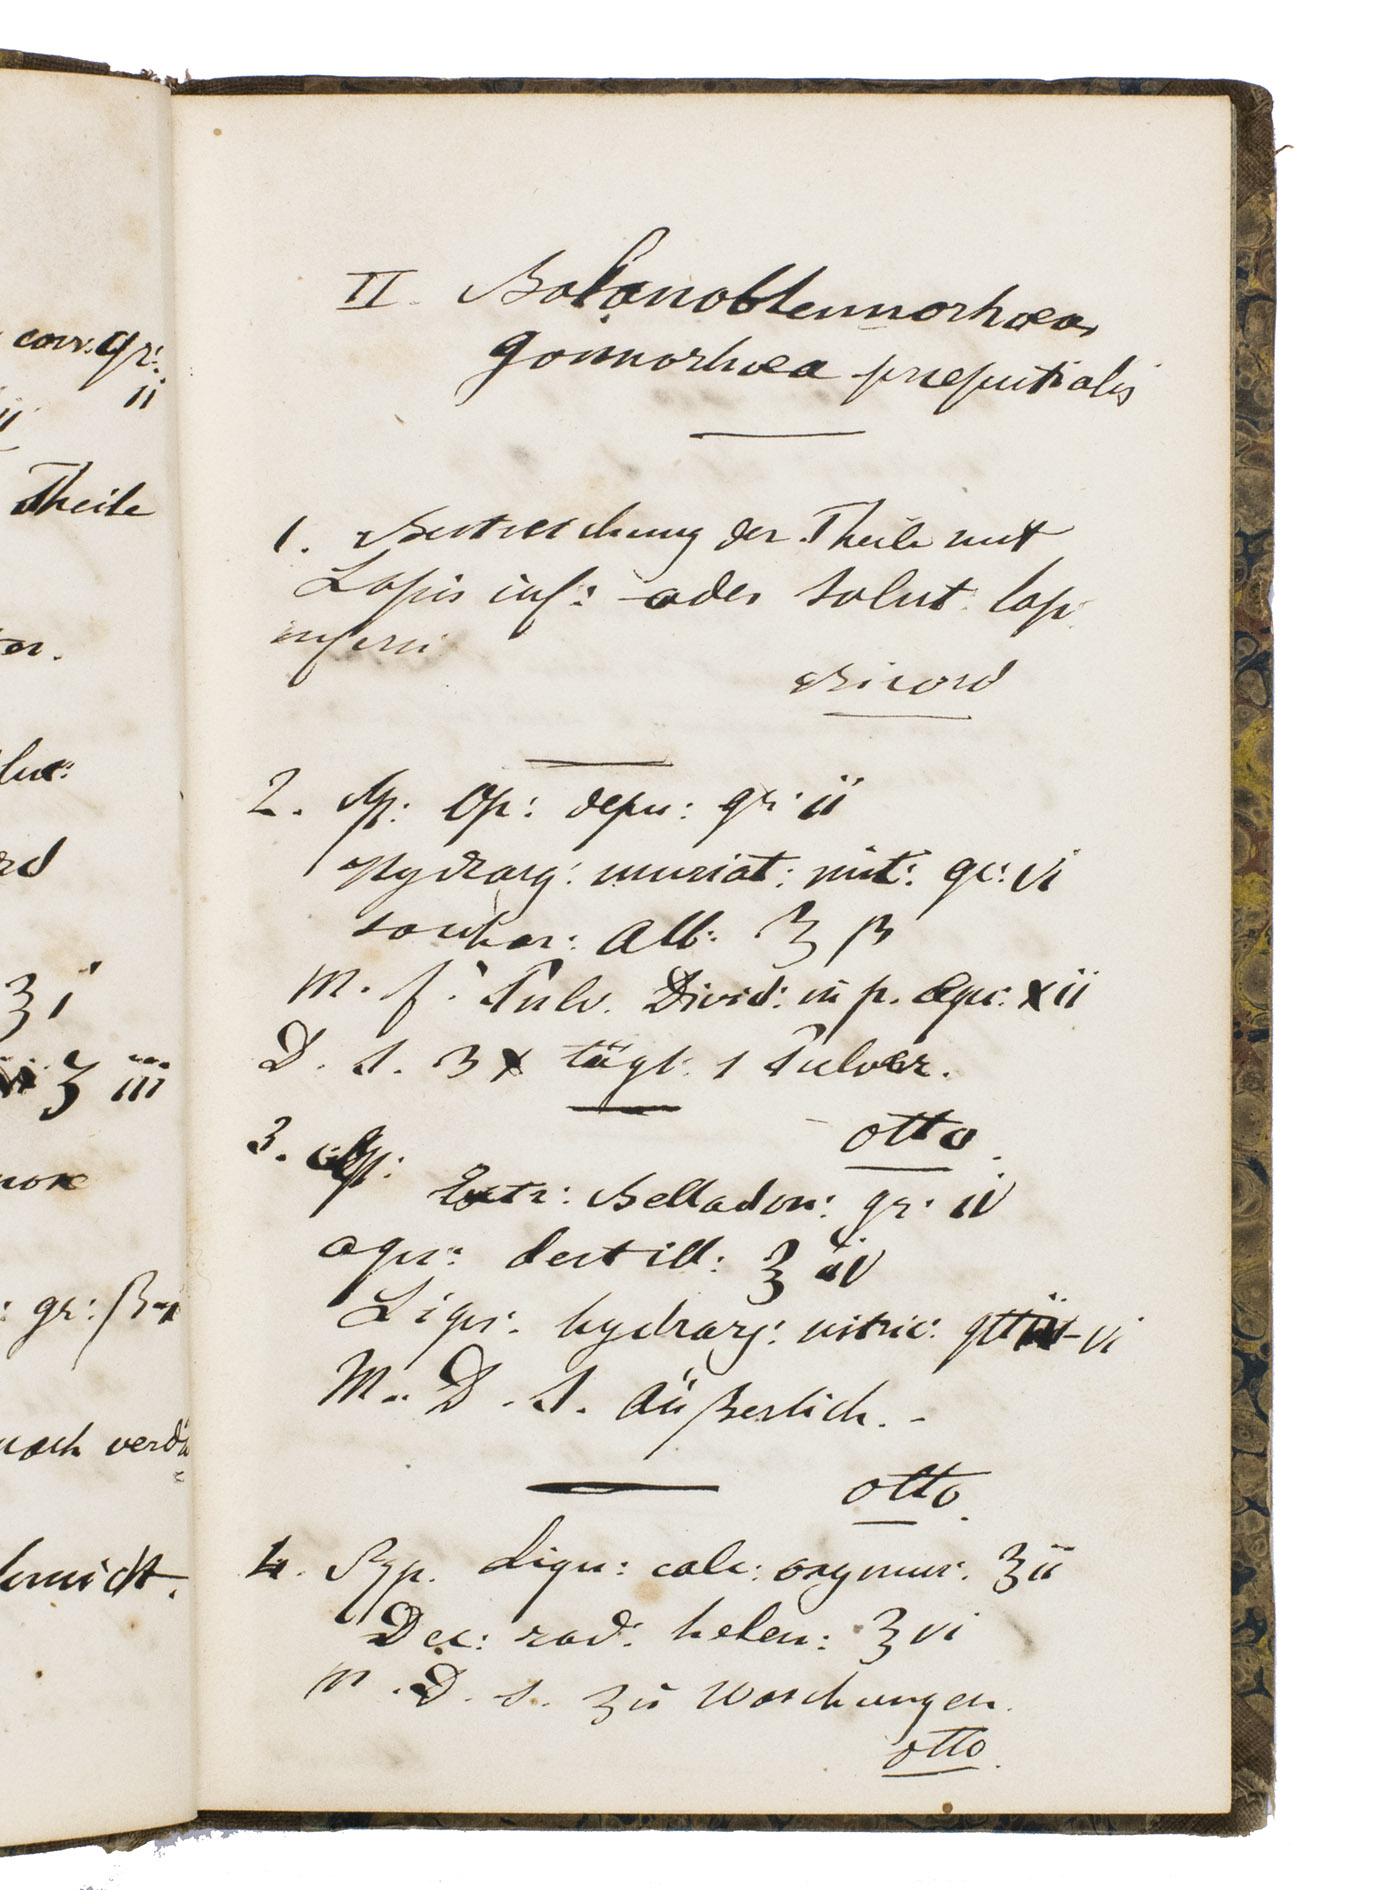 corr: gr:
ii
Theile
rd
ʒ i
ʒ iii
: gr: ß
nach verdü
hmidt.
II. Balanoblennorhoea,
gonnorhoea praeputialis
1. Bestreichung der Theile mit
Lapis inf: oder solut: lap:
inferni
Ricord
2. Rp: Op: depu: gr: ii
Hydrarg: muriat: mit: gr: vi
sacchar: Alb: ʒ ß
M. f. Pulv. Divid: in p. aequ: xii
D. S. 3 x tägl: 1 Pulver.
Otto.
3. Rp:
Extr: Belladon: gr: iv
aqu: destill: ʒ iv
Liqu: hydrarg: nitric: gtt iv - vi
M. D. S. Äußerlich. -
Otto.
4. Rp. Liqu: calc: oxymur: ʒ ii
Dec: rad: helen: ʒ vi
M. D. S. Zu Waschungen.
Otto.